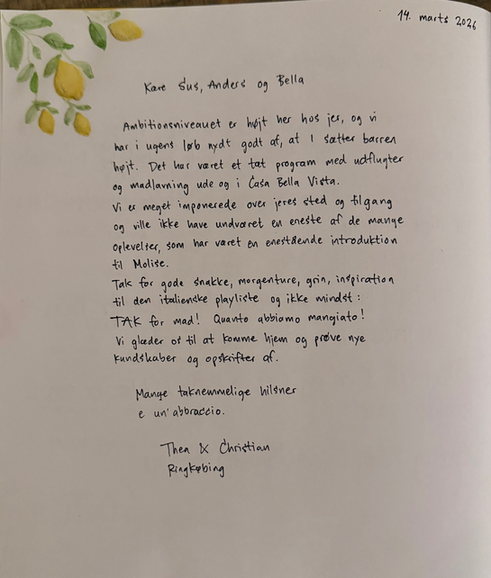 14. marts 2026
Kære Sus, Anders og Bella
Ambitionsniveauet er højt her hos jer, og vi
har i ugens løb nydt godt af, at I sætter barren
højt. Det har været et tæt program med udflugter
og madlavning ude og i Casa Bella Vista.
Vi er meget imponerede over jeres sted og tilgang
og ville ikke have undværet en eneste af de mange
oplevelser, som har været en enestående introduktion
til Molise.
Tak for gode snakke, morgenture, grin, inspiration
til den italienske playliste og ikke mindst:
TAK for mad! Quanto abbiamo mangiato!
Vi glæder os til at komme hjem og prøve nye
kundskaber og opskrifter af.
Mange taknemmelige hilsner
e un'abbraccio.
Thea & Christian
Ringkøbing